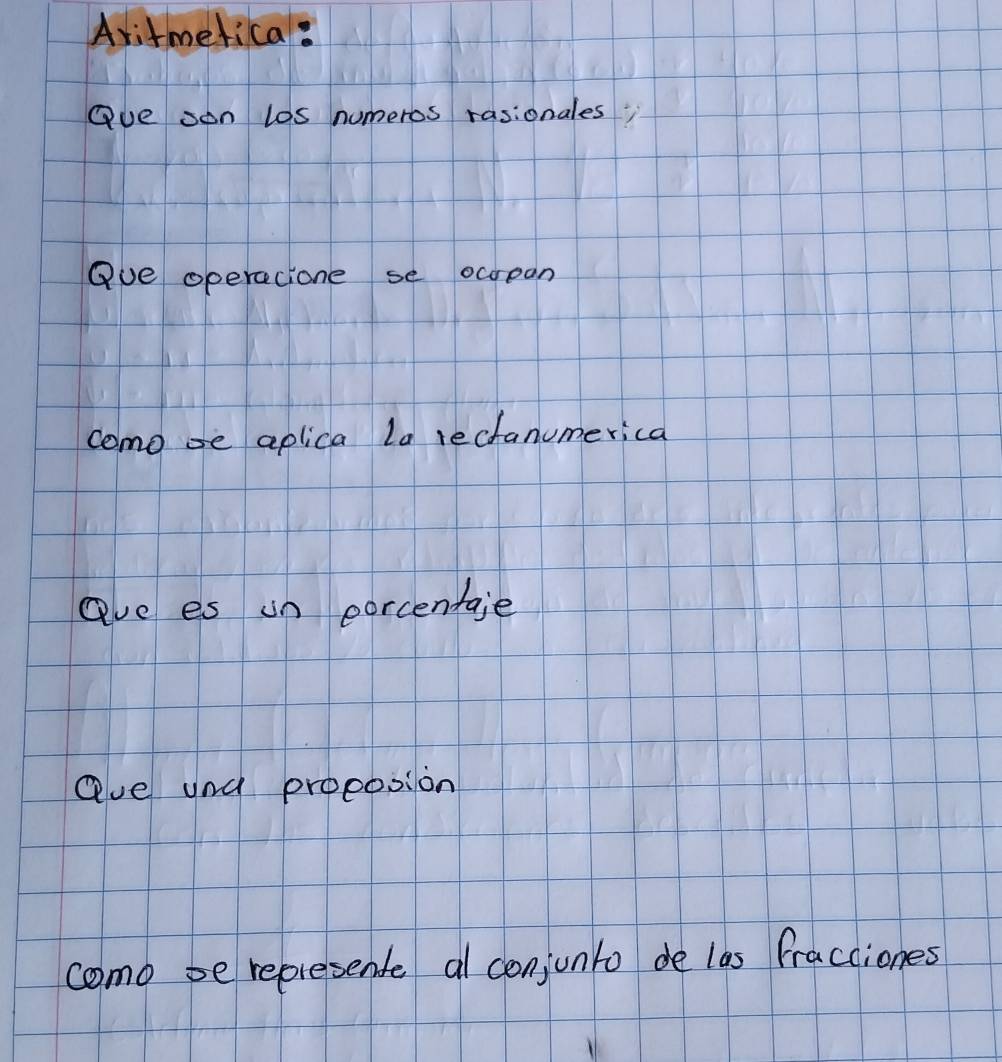 Aritmetica:
Que son los numeros rasionales
Que operacione se ocupan
como se aplica la rectanumerica
Que es un porcentaje
Que una proposión
como se represente al conjunto de las fracciones